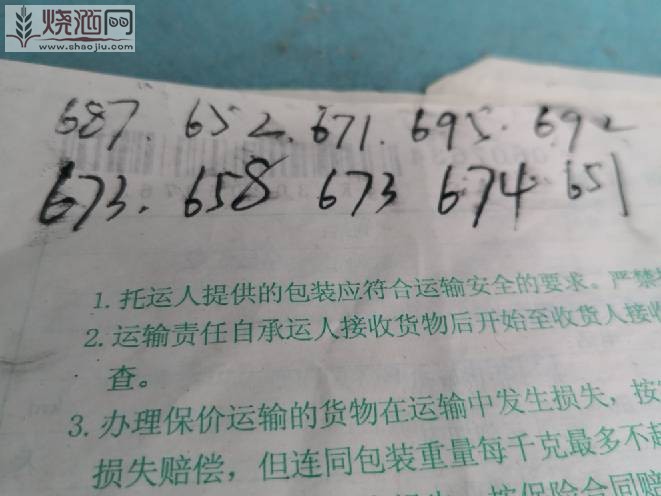 烧酒网
www.shaojiu.com
687. 652. 671. 695. 692
673. 658 673 674. 651
1. 托运人提供的包装应符合运输安全的要求。严禁
2. 运输责任自承运人接收货物后开始至收货人接收
查。
3. 办理保价运输的货物在运输中发生损失，按
损失赔偿，但连同包装重量每千克最多不超
按保险合同赔